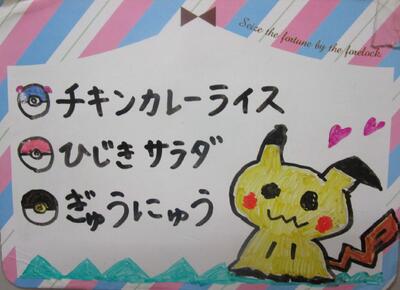 Seize the fortune by the forelock.
チキンカレーライス
ひじきサラダ
ぎゅうにゅう